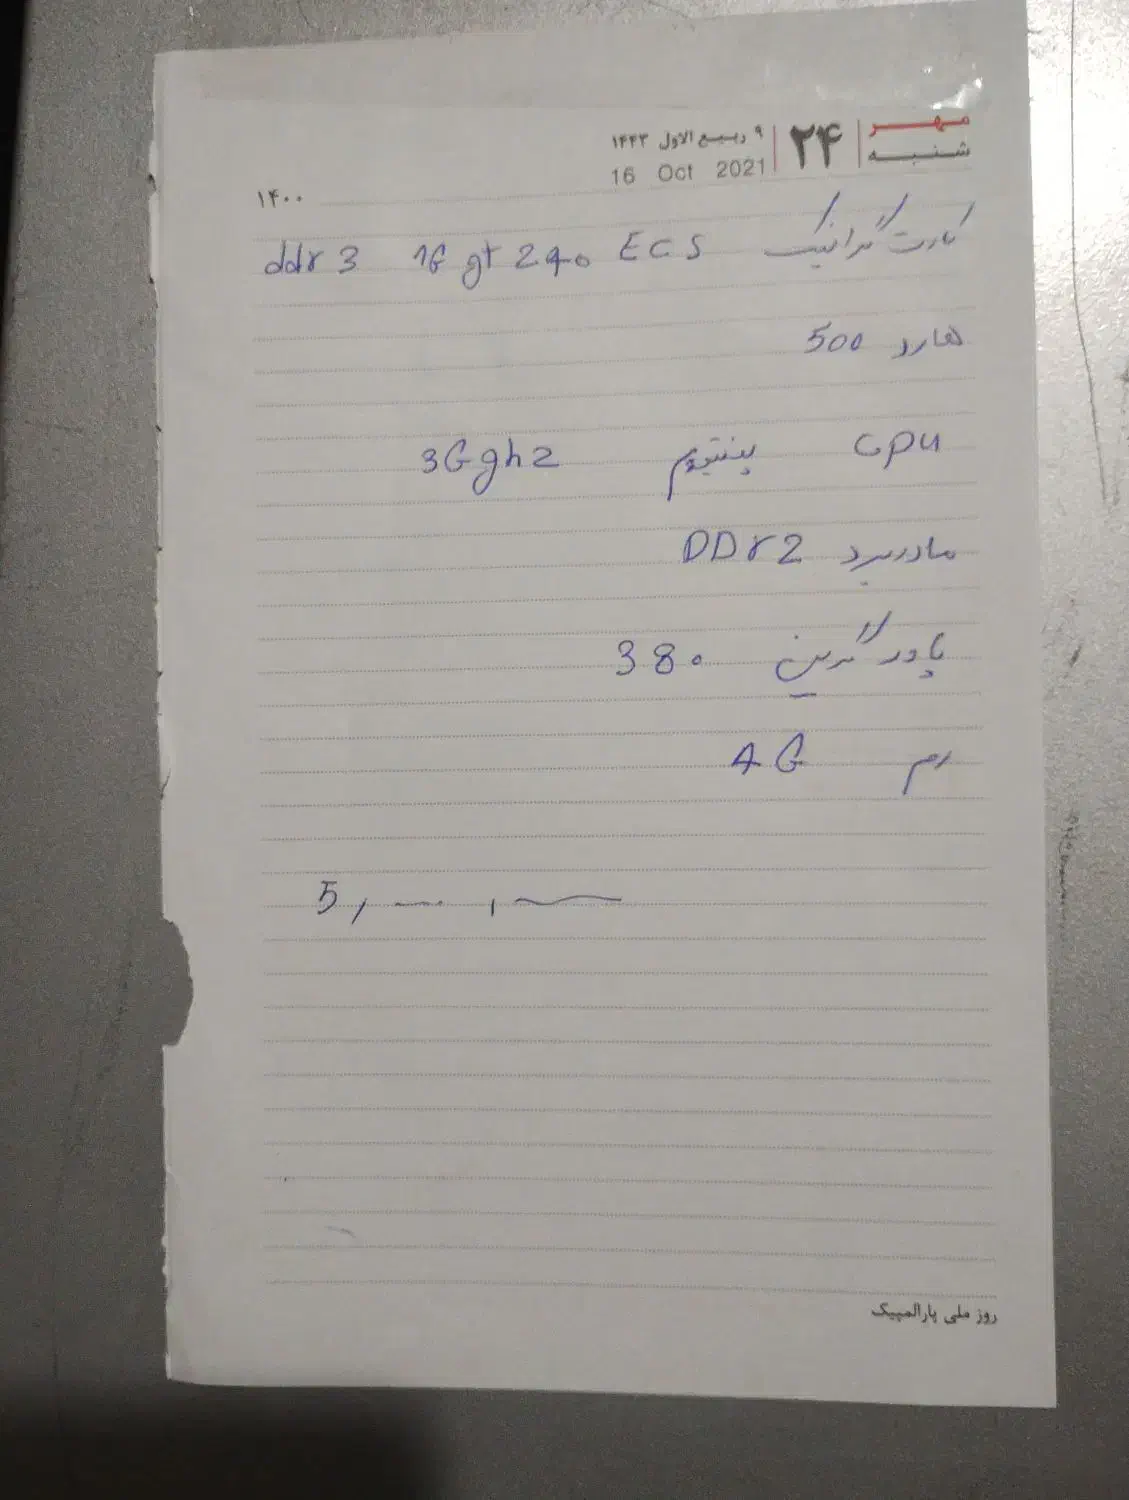 مهر
شنبه
۲۴
۹ ربیع الاول ۱۴۴۳
16 Oct 2021
۱۴۰۰
کارت گرافیک ECS gt 240 1G ddr 3
هارد 500
cpu پنتیوم 3Gghz
مادربرد DDr2
پاور گرین 380
رم 4G
5,
روز ملی پارالمپیک